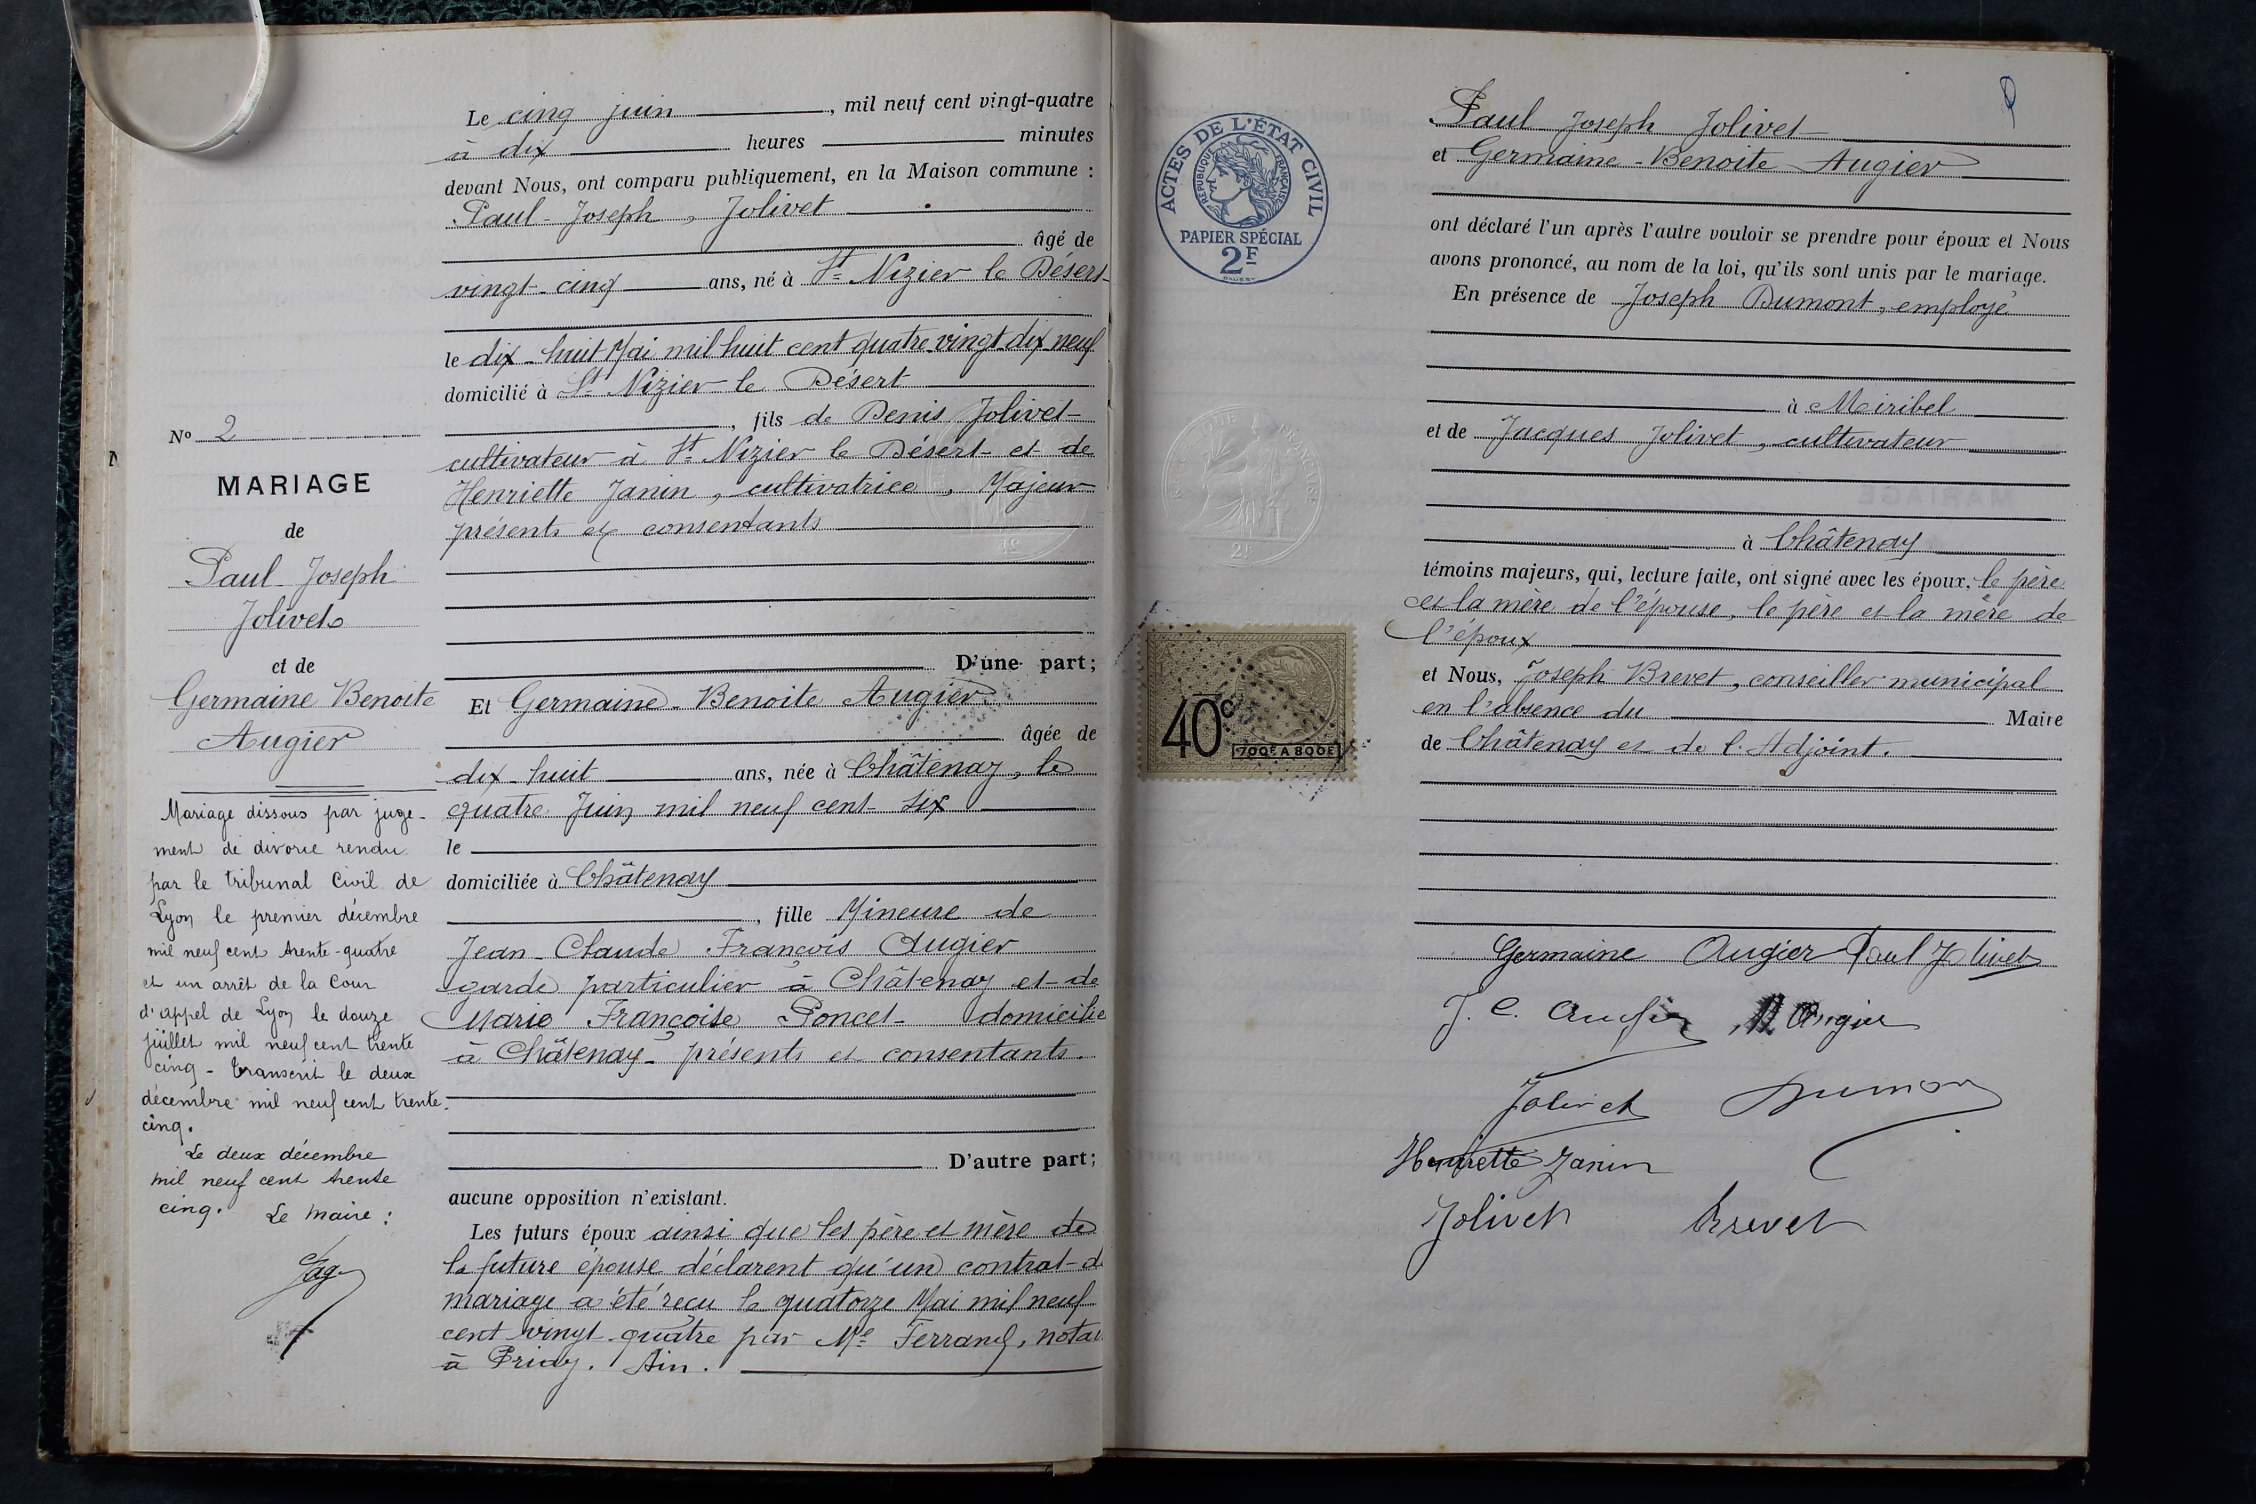 Le cinq juin, mil neuf cent vingt-quatre
à dix heures minutes
devant Nous, ont comparu publiquement, en la Maison commune :
Paul-Joseph, Jolivet
âgé de
vingt-cinq ans, né à St Nizier le Désert
le dix-huit Mai mil huit cent quatre-vingt dix neuf
domicilié à St Nizier le Désert
, fils de Denis Jolivet
cultivateur à St Nizier le Désert et de
Henriette Janin, cultivatrice, Majeur
présents et consentants
D'une part;
Et Germaine-Benoite Augier
âgée de
dix-huit ans, née à Châtenay, le
quatre Juin mil neuf cent six
le
domiciliée à Châtenay
, fille Mineure de
Jean-Claude François Augier
garde particulier à Châtenay et de
Marie Françoise Poncet domicilié
à Châtenay présents et consentants.
D'autre part;
aucune opposition n'existant.
Les futurs époux ainsi que les père et mère de
la future épouse déclarent qu'un contrat d
mariage a été reçu le quatorze Mai mil neuf
cent vingt-quatre par Me Ferrand, notai
à Priay. Ain.
No 2
MARIAGE
de
Paul-Joseph
Jolivet
et de
Germaine Benoite
Augier
Mariage dissous par juge-
ment de divorce rendu
par le tribunal Civil de
Lyon le premier décembre
mil neuf cent trente-quatre
et un arrêt de la Cour
d'appel de Lyon le douze
juillet mil neuf cent trente
cinq - transcrit le deux
décembre mil neuf cent trente-
cinq.
Le deux décembre
mil neuf cent trente
cinq. Le Maire :
ACTES DE L'ÉTAT CIVIL
RÉPUBLIQUE FRANÇAISE
PAPIER SPÉCIAL
2F
2F
40c
700F A 800F
Paul Joseph Jolivet
et Germaine-Benoite Augier
ont déclaré l'un après l'autre vouloir se prendre pour époux et Nous
avons prononcé, au nom de la loi, qu'ils sont unis par le mariage.
En présence de Joseph Dumont, employé
à Miribel
et de Jacques Jolivet, cultivateur
à Châtenay
témoins majeurs, qui, lecture faite, ont signé avec les époux, le père
et la mère de l'épouse, le père et la mère de
l'époux
et Nous, Joseph Brevet, conseiller municipal
en l'absence du Maire
de Châtenay et de l'Adjoint.
Germaine Augier Paul Jolivet
J. C. Augier Augier
Jolivet Dumont
Henriette Janin
Jolivet Brevet